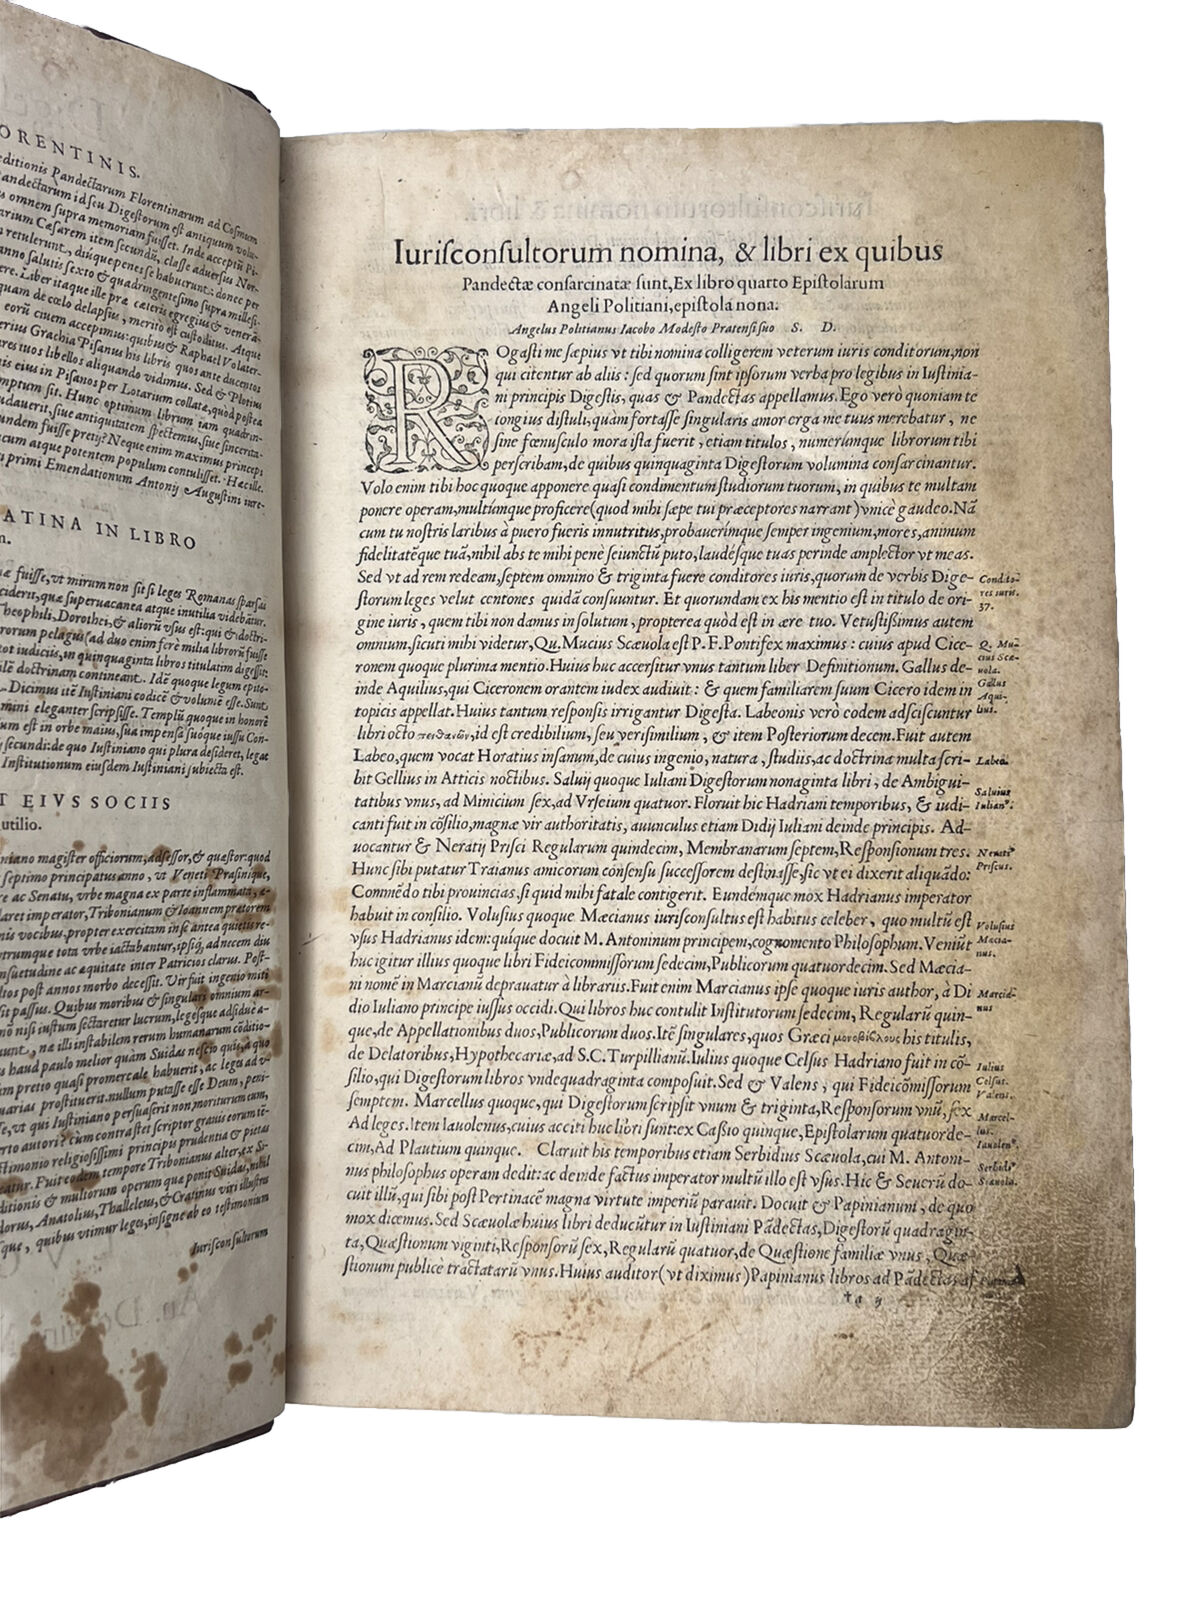 ORENTINIS.
editionis Pandectarum Florentinarum ad Cosmum
Pandectarum id seu Digestorum est antiquum volu-
s omnem supra memoriam fuisset. Inde acceptũ Pi-
narium Cæsarem item secundũ, classe aduersus Nor-
retulerunt, diúque penes se habuerunt: donec per
anno salutis sexto & quadringentesimo supra millesi-
ere. Liber itaque ille præ cæteris egregius & venera-
quam de cœlo delapsus, merito est custoditus. Atque
eorũ ciuem accepimus: quibus & Raphael Volater-
erius Grachia Pisanus his libris quos ante ducentos
res tuos libellos aliquando vidimus. Sed & Plotius
is eius in Pisanos per Lotarium collata, quod postea
mptum sit. Hunc optimum librum iam quadrin-
udauerit, siue antiquitatem spectemus, siue sincerita-
undem fuisse pretij? Neque enim maximus princeps
cum atque potentem populum contulisset. Hæc ille.
primi Emendationum Antonij Augustini iure-
ATINA IN LIBRO
m.
æ fuisse, vt mirum non sit si leges Romanas sparsas
ciderit, quæ superuacanea atque inutilia videbãtur.
heophili, Dorothei, & aliorũ vsus est: qui & doctri-
rorum pelagus (ad duo enim ferè milia librorũ fuisse
tot iudiciis, in quinquaginta libros titulatim digessit:
lẽ doctrinam contineant. Idẽ quoque legum epito-
. Dicimus itẽ Iustiniani codicẽ & volumẽ esse. Sunt
mini eleganter scripsisse. Templũ quoque in honorẽ
ium est in orbe maius, sua impensa suoque iussu Con-
ij secundi: de quo Iustiniano qui plura desideret, legat
Institutionum eiusdem Iustiniani subiecta est.
T EIVS SOCIIS
utilio.
niano magister officiorum, adsessor, & quæstor: quod
septimo principatus anno, vt Veneti Prasinique,
re ac Senatu, vrbe magna ex parte inflammata, æ-
laret imperator, Tribonianum & Ioannem prætorem
nis vocibus. propter exercitam in se antea quietu re-
trumque tota vrbe iactabantur, ipsiq; ad necem diu
nsuetudine ac æquitate inter Patricios clarus. Post-
ltos post annos morbo decessit. Vir fuit ingenio miti
sit passius. Quibus moribus & singulari omnium ar-
nõ nisi iustum sectaretur lucrum, legesque adsiduè a-
unt, næ illi instabilem rerum humanarum cõditio-
s haud paulo melior quàm Suidas nescio quis, a quo
m pretio quasi promercale habuerit, ac leges ad v-
uarias prostituerit. nullum putasse esse Deum, peni-
e, vt qui Iustiniano persuaserit non moriturum eum,
rto autori? cùm contra stet scriptor grauis eorum tẽ-
ctimonio religiosissimi principis prudentia & pietas
eatur. Fuit eodem tempore Tribonianus alter, ex Si-
ditionis & multorum operum quæ ponit Suidas, nihil
dorus, Anatolius, Thalleleus, & Cratinus viri illustres
sque, quibus vtimur leges, insigne ab eo testimonium
Iurisconsultorum
Iurisconsultorum nomina, & libri ex quibus
Pandectæ consarcinatæ sunt, Ex libro quarto Epistolarum
Angeli Politiani, epistola nona.
Angelus Politianus Iacobo Modesto Pratensi suo S. D.
ROgasti me sæpius vt tibi nomina colligerem veterum iuris conditorum, non
qui citentur ab aliis: sed quorum sint ipsorum verba pro legibus in Iustinia-
ni principis Digestis, quas & Pandectas appellamus. Ego verò quoniam te
longius distuli, quàm fortasse singularis amor erga me tuus merebatur, ne
sine fœnusculo mora ista fuerit, etiam titulos, numerúmque librorum tibi
perscribam, de quibus quinquaginta Digestorum volumina consarcinantur.
Volo enim tibi hoc quoque apponere quasi condimentum studiorum tuorum, in quibus te multam
ponere operam, multúmque proficere (quod mihi sæpe tui præceptores narrant) vnicè gaudeo. Nã
cum tu nostris laribus a puero fueris innutritus, probauerimque semper ingenium, mores, animum
fidelitatẽque tuã, nihil abs te mihi penè seiunctũ puto, laudésque tuas perinde amplector vt meas.
Sed vt ad rem redeam, septem omnino & triginta fuere conditores iuris, quorum de verbis Dige-
storum leges velut centones quidã consuuntur. Et quorundam ex his mentio est in titulo de ori-
gine iuris, quem tibi non damus in solutum, propterea quòd est in ære tuo. Vetustissimus autem
omnium, sicuti mihi videtur, Qu. Mucius Scæuola est P. F. Pontifex maximus: cuius apud Cice-
ronem quoque plurima mentio. Huius huc accersitur vnus tantum liber Definitionum. Gallus de-
inde Aquilius, qui Ciceronem orantem iudex audiuit: & quem familiarem suum Cicero idem in
topicis appellat. Huius tantum responsis irrigantur Digesta. Labeonis verò eodem adsciscuntur
libri octo πειθανῶν, id est credibilium, seu verisimilium, & item Posteriorum decem. Fuit autem
Labeo, quem vocat Horatius insanum, de cuius ingenio, natura, studiis, ac doctrina multa scri-
bit Gellius in Atticis noctibus. Saluij quoque Iuliani Digestorum nonaginta libri, de Ambigui-
tatibus vnus, ad Minicium sex, ad Vrseium quatuor. Floruit hic Hadriani temporibus, & iudi-
canti fuit in cõsilio, magnæ vir authoritatis, auunculus etiam Didij Iuliani deinde principis. Ad-
uocantur & Neratij Prisci Regularum quindecim, Membranarum septem, Responsionum tres.
Hunc sibi putatur Traianus amicorum consensu successorem destinasse, sic vt ei dixerit aliquãdo:
Commẽdo tibi prouincias, si quid mihi fatale contigerit. Eundemque mox Hadrianus imperator
habuit in consilio. Volusius quoque Mæcianus iurisconsultus est habitus celeber, quo multũ est
vsus Hadrianus idem: quíque docuit M. Antoninum principem, cognomento Philosophum. Veniũt
huc igitur illius quoque libri Fideicommissorum sedecim, Publicorum quatuordecim. Sed Mæcia-
ni nomẽ in Marcianũ deprauatur à librariis. Fuit enim Marcianus ipse quoque iuris author, à Di
dio Iuliano principe iussus occidi. Qui libros huc contulit Institutorum sedecim, Regularũ quin-
que, de Appellationibus duos, Publicorum duos. Itẽ singulares, quos Græci μονοβίβλους his titulis,
de Delatoribus, Hypothecariæ, ad S.C. Turpillianũ. Iulius quoque Celsus Hadriano fuit in cõ-
silio, qui Digestorum libros vndequadraginta composuit. Sed & Valens, qui Fideicõmissorum
septem. Marcellus quoque, qui Digestorum scripsit vnum & triginta, Responsorum vnũ, sex
Ad leges. Item Iauolenus, cuius acciti huc libri sunt: ex Cassio quinque, Epistolarum quatuorde-
cim, Ad Plautium quinque. Claruit his temporibus etiam Serbidius Scæuola, cui M. Antoni-
nus philosophus operam dedit: ac deinde factus imperator multũ illo est vsus. Hic & Seuerũ do-
cuit illũ, qui sibi post Pertinacẽ magna virtute imperiũ parauit. Docuit & Papinianum, de quo
mox dicemus. Sed Scæuolæ huius libri deducũtur in Iustiniani Pãdectas, Digestorũ quadragin-
ta, Quæstionum viginti, Responsorũ sex, Regularũ quatuor, de Quæstione familiæ vnus, Quæ
stionum publicè tractatarũ vnus. Huius auditor (vt diximus) Papinianus libros ad Pãdectas af
† a ij
Condito-
res iuris.
37.
Q. Mu-
cius Scæ-
uola.
Gallus
Aqui-
lius.
Labeo.
Saluius
Iulianꝰ.
Neratiꝰ
Priscus.
Volusius
Mæcia-
nus.
Marcia-
nus
Iulius
Celsus.
Valens.
Marcel-
lus.
Iauolenꝰ.
Serbidiꝰ
Scæuola.